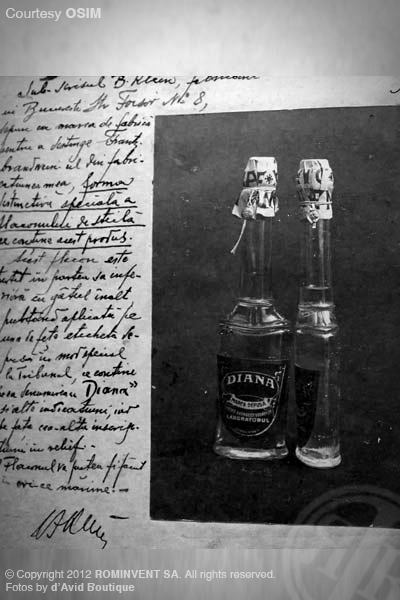 Courtesy OSIM
Sub-scrisul B. Klein,
in Bucuresti Str. No 8,
depun ca marca de fabrică
pentru a distinge
din fabri-
catiunea mea, forma
distinctiva specială a
flaconului de sticlă
ce contine acest produs.
Acest flacon este
in partea sa infe-
rióră cu gâtul inalt
putênd aplicată pe
una de fete etichetă de-
pusă in mod special
la Tribunal, ce contine
denumirea "Diana"
si alte indicatiuni, iar
pe fata cea-altă inscrip-
in relief.
Flaconul va putea fi facut
in ori-ce mărime.
DIANA
MARCA DEPUSĂ
LABORATORUL
© Copyright 2012 ROMINVENT SA. All rights reserved.
Fotos by d'Avid Boutique